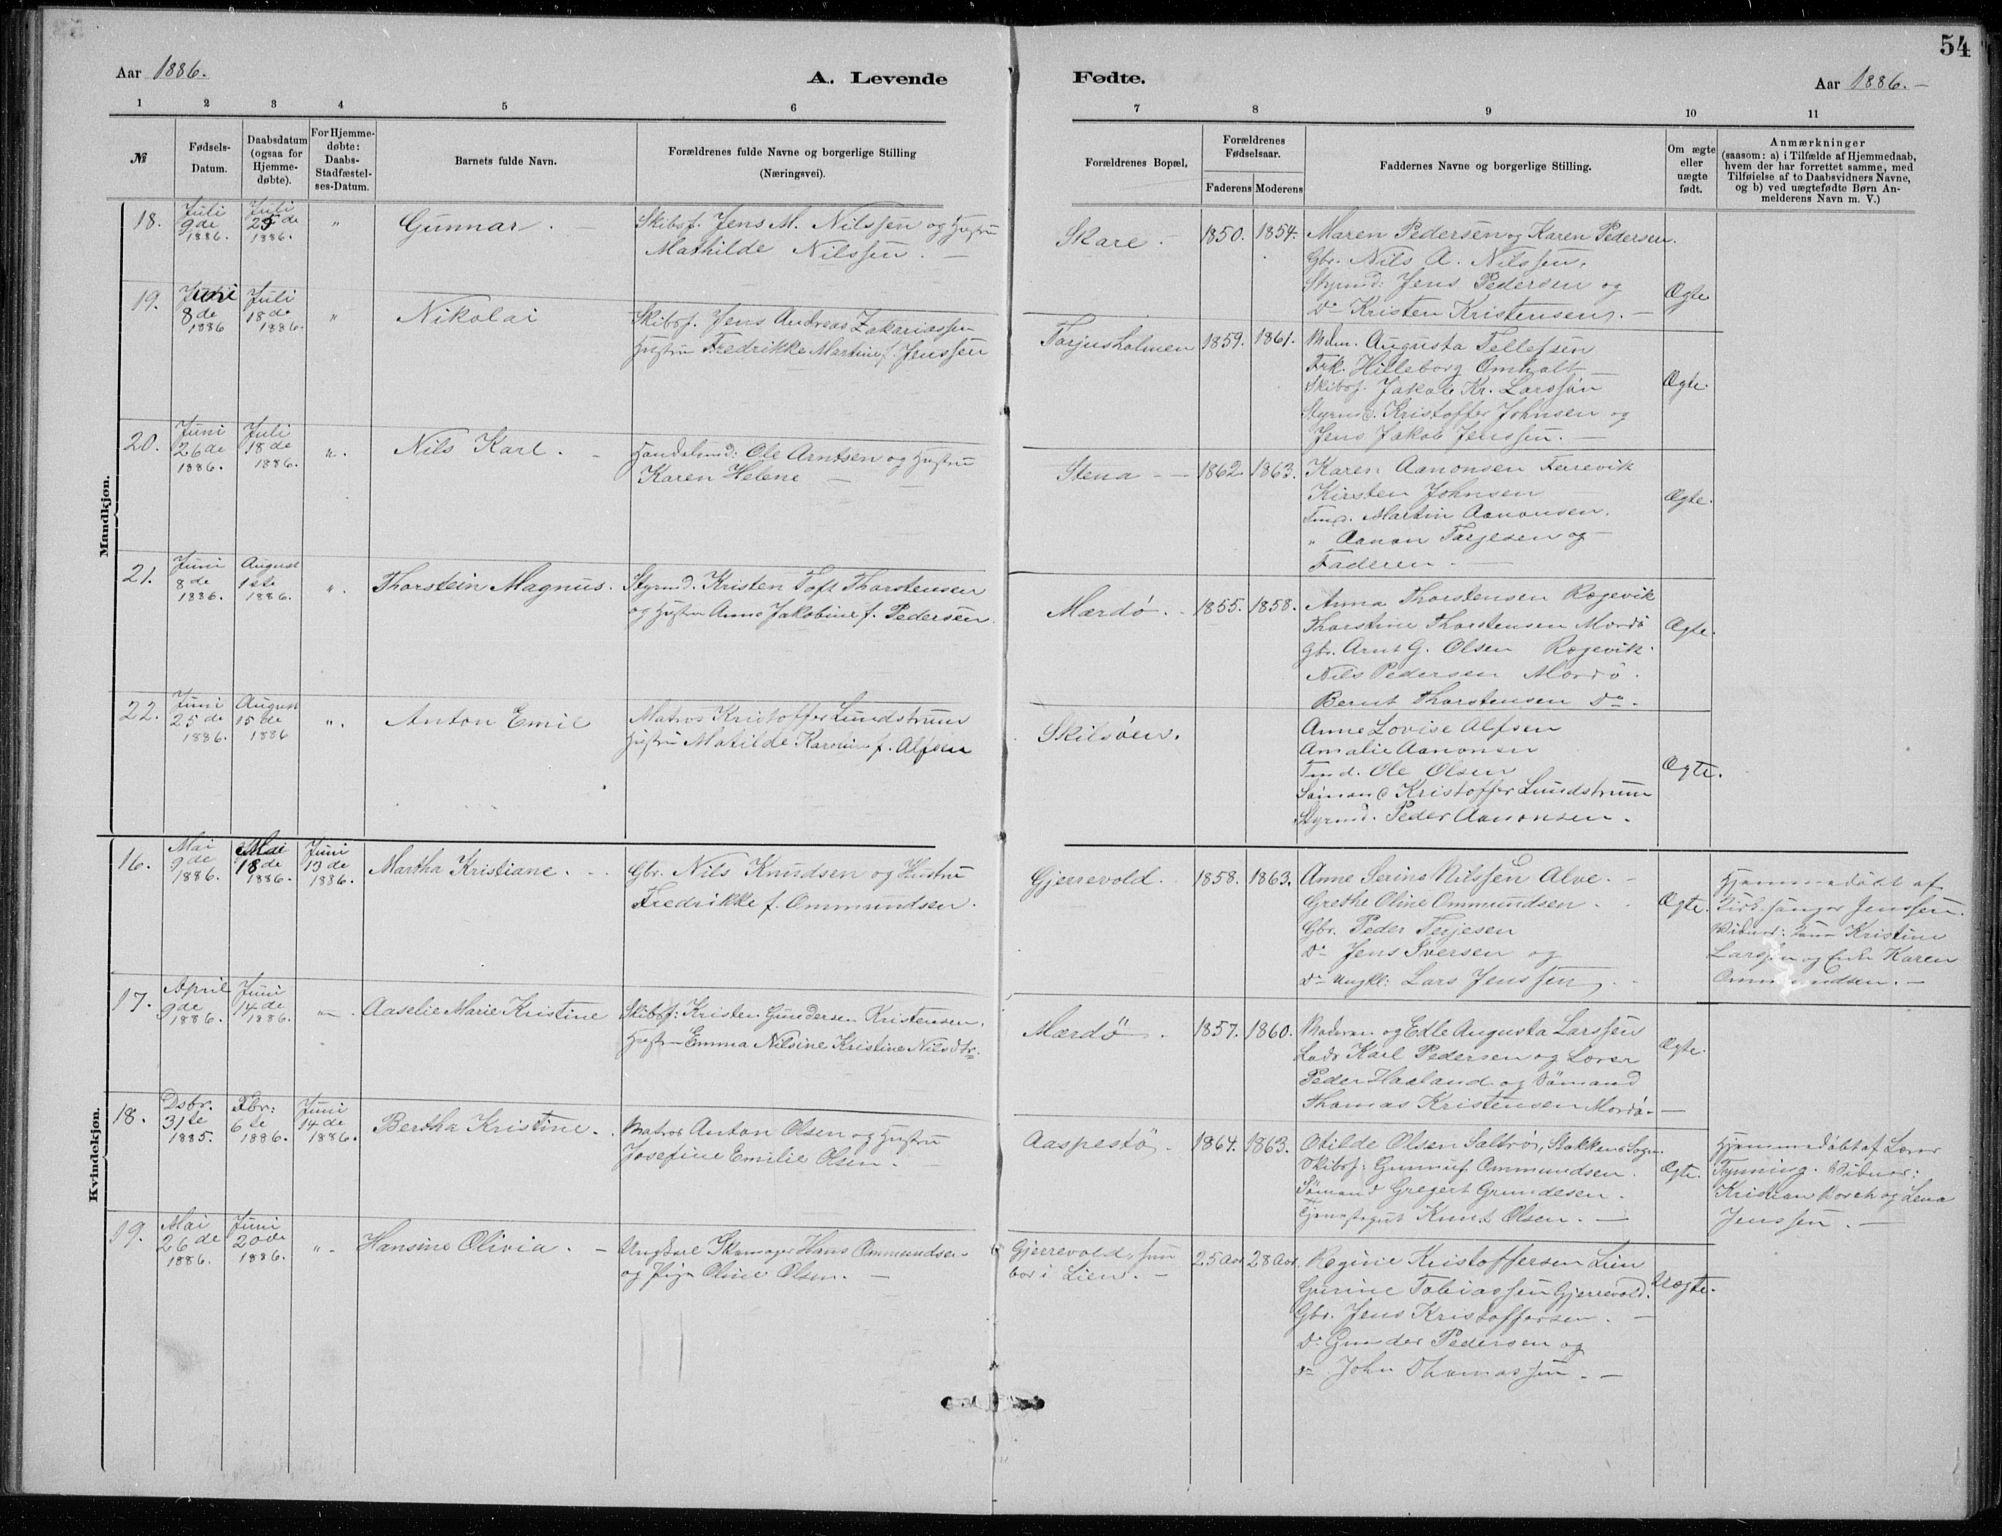 54
Aar 1886.
A. Levende
Fødte.
Aar 1886. —
1 2 3 4 5 6 7 8 9 10 11
№
Fødsels-
Datum.
Daabsdatum
(ogsaa for
Hjemme-
døbte).
For Hjemme-
døbte:
Daabs-
Stadfæstel-
ses-Datum.
Barnets fulde Navn.
Forældrenes fulde Navne og borgerlige Stilling
(Næringsvei).
Forældrenes Bopæl,
Forældrenes
Fødselsaar.
Faderens Moderens
Faddernes Navne og borgerlige Stilling.
Om ægte
eller
uægte
født.
Anmærkninger
(saasom: a) i Tilfælde af Hjemmedaab,
hvem der har forrettet samme, med
Tilføielse af to Daabsvidners Navne,
og b) ved uægtefødte Børn An-
melderens Navn m. V.)
Mandkjøn.
18.
Juli
9de
1886.
Juli
25de
1886.
"
Gunnar.
Skibsf. Jens M. Nilssen og Hustru
Mathilde Nilssen. —
Skare —
1850. 1854.
Maren Pedersen og Karen Pedersen.
Gbr. Nils A. Nilssen,
Styrmd: Jens Pedersen og
Do Kristen Kristensen. —
Ægte
19.
Juni
8de
1886
Juli
18de
1886.
"
Nikolai
Skibsf. Jens Andreas Zakariassen
Hustru Fredrikke Martine f. Jenssen
Torjusholmen
1859. 1861.
Mdm. Augusta Tellefsen
Frk. Hilleborg Omholt —
Skibsf. Jakob Kr. Larssen
Styrmd. Kristoffer Johnsen og
Jens Jakob Jenssen. —
Ægte.
20.
Juni
26de
1886.
Juli
18de
1886.
".
Nils Karl. —
Handelsmd: Ole Arntsen og Hustru
Karen Helene —
Stena — —
1862. 1863.
Karen Aanonsen Ferrevik
Kirsten Johnsen —
Fmd. Martin Aanonsen.
" Aanon Tarjesen og —
Faderen. —
Ægte.
21.
Juni
8de
1886.
August
1ste
1886.
".
Thorstein Magnus.
Styrmd. Kristen Toft Thorstensen
og Hustru Anne Jakobine f. Pedersen.
Mærdø. .
1855. 1858.
Anna Thorstensen Rægevik
Thorstine Thorstensen Mærdø
Gbr. Arnt G. Olsen Rægevik.
Nils Pedersen Mærdø.
Bernt Thorstensen Do.
Ægte.
22.
Juni
25de
1886.
August
15de
1886
".
Anton Emil
Matros Kristoffer Lundstrum
Hustru Matilde Karoline f. Alfsen
Skilsøen.
Anne Lovise Alfsen
Amalie Aanonsen
Fmd. Ole Olsen
Sømand Kristoffer Lundstrum
Styrmd. Peder Aanonsen.
Ægte.
Kvindekjøn.
16.
Mai
9de
1886.
Mai
18de
1886.
Juni
13de
1886.
Martha Kristiane. . .
Gbr. Nils Knudsen og Hustru
Fredrikke f. Ommundsen.
Gjerrevold.
1858. 1863.
Anne Serine Nilssen Alve. —
Grethe Oline Ommundsen . .
Gbr. Peder Terjesen
Do Jens Iversen og
Do Ungkl: Lars Jenssen.
Ægte.
Hjemmedøbt af
Kirkesanger Jenssen.
Vidner: Kristine
Larssen og Enke Karen
Ommundsen. —
17.
April
9de
1886.
Juni
14de
1886.
"
Aaselie Marie Kristine
Skibsf: Kristen Gundersen Kristensen,
Hustru Emma Nilsine Kristine Nilsdtr.
Mærdø .
1857. 1860.
Moderen og Edle Augusta Larssen
Lods Karl Pedersen og Lærer
Peder Haaland og Sømand
Thomas Kristensen Mærdø. —
Ægte.
18.
Dsbr.
31te
1885.
Fbr:
6te
1886.
Juni
14de
1886.
Bertha Kristine. .
Matros Anton Olsen og Hustru
Josefine Emilie Olsen. —
Aaspestø.
1864. 1863.
Otilde Olsen Saltrø, Stokkens Sogn
Skibsf: Gunnuf Ommundsen.
Sømand Gregert Grundesen.
Tjenestegut Knut Olsen. —
Ægte.
Hjemmedøbt af Lærer
Tynning. Vidner:
Kristian Bosch og Lena
Jenssen. —
19.
Mai
26de
1886.
Juni
20de
1886.
".
Hansine Olivia. —
Ungkarl Skomager Hans Ommundsen
og Pige Oline Olsen. —
Gjerrevold, hun
bor i Lien. —
25 Aar 28 Aar.
Regine Kristoffersen Lien
Gurine Tobiassen Gjerrevold.
Gbr. Jens Kristoffersen. —
Do Gunder Pedersen og
Do John Thomassen. —
Uægte.